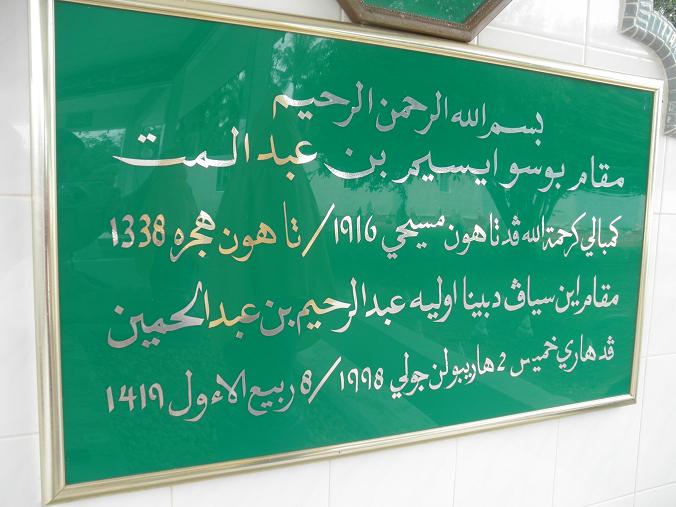 بسم الله الرحمن الرحيم
مقام بوسو ايسيم بن عبد المت
كمبالي كرحمة الله ڤد تاهون مسيحي 1916/ تاهون هجره 1338
مقام اين سياڤ دبينا اوليه عبد الرحيم بن عبد الحمين
ڤد هاري خميس 2 هاريبولن جولي 1998/ 8 ربيع الاءول 1419